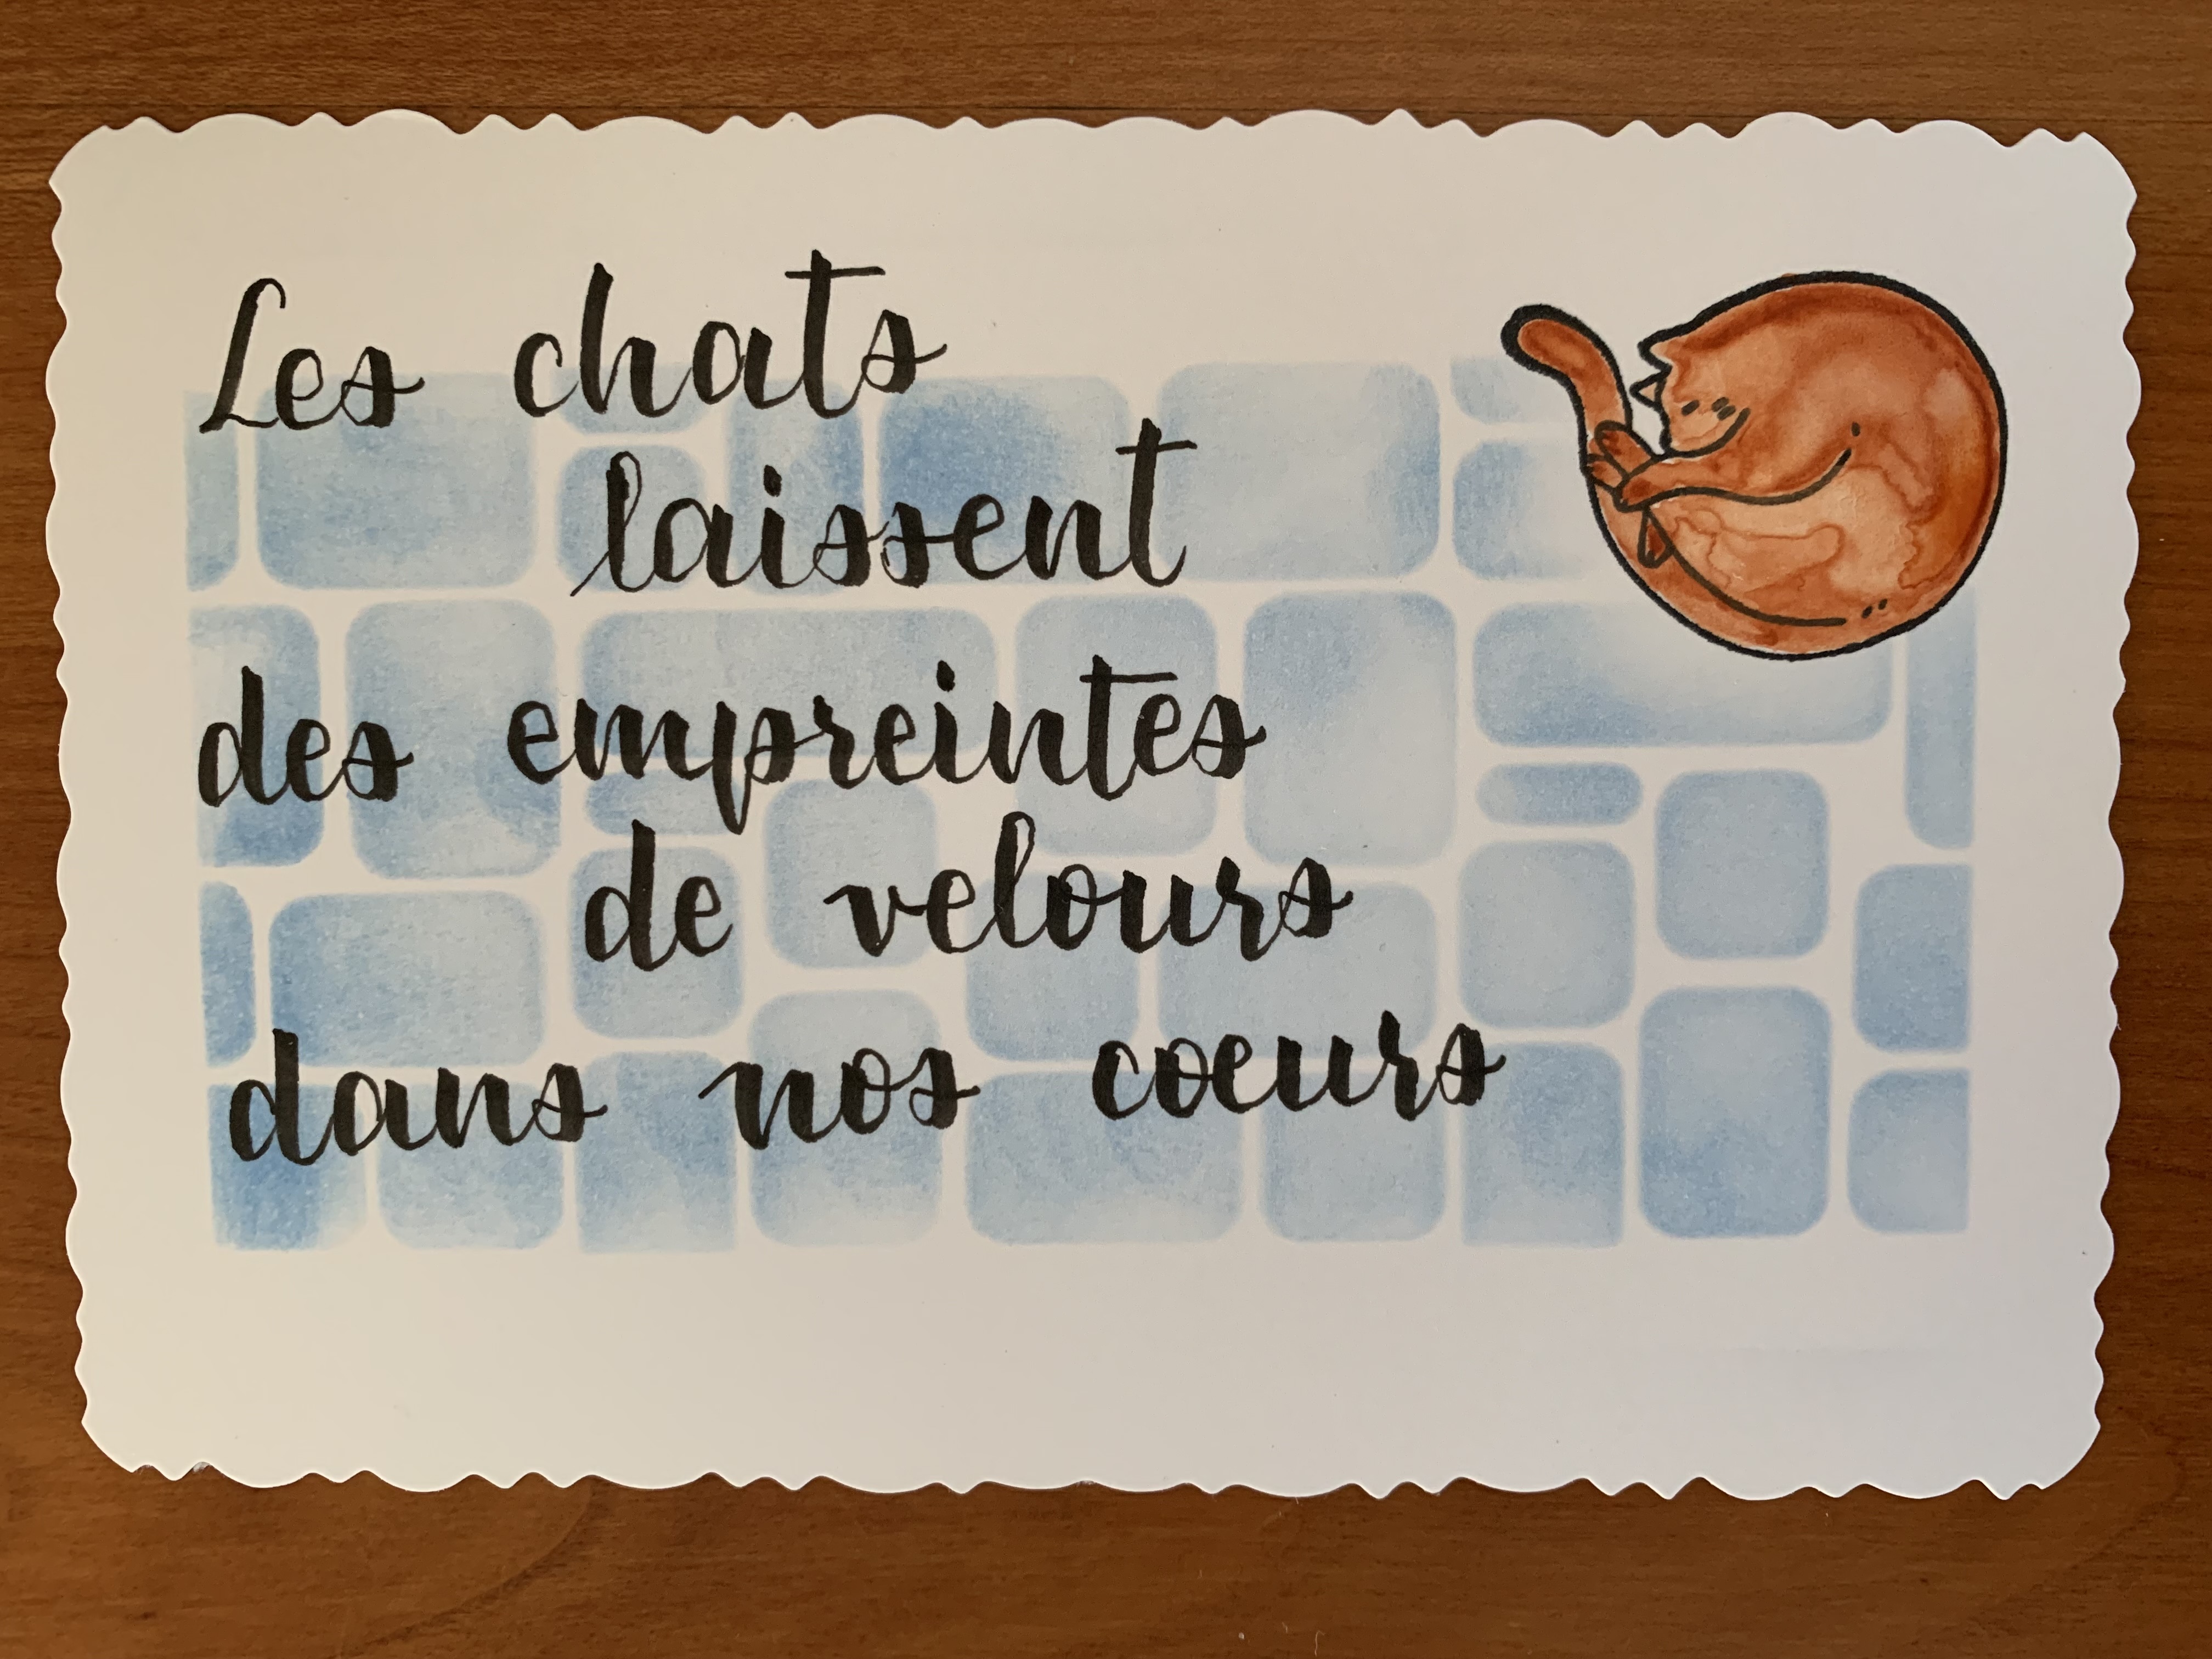 Les chats
laissent
des empreintes
de velours
dans nos cœurs